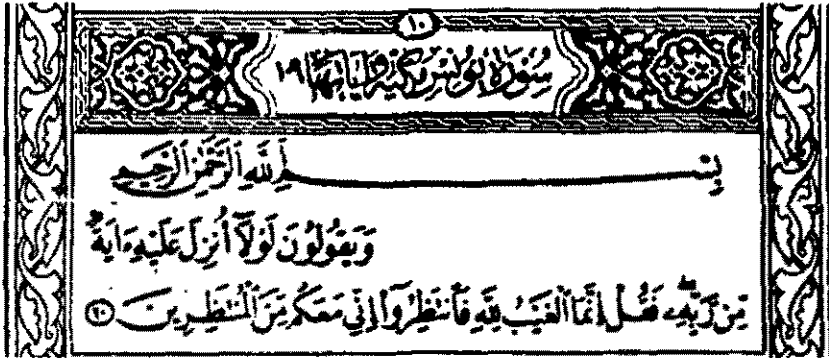 ١٠
سُورَةُ يُونُسَ مَكِّيَّة وَآيَاتُهَا ١٠٩
بِسْمِ اللَّهِ الرَّحْمَٰنِ الرَّحِيمِ
وَيَقُولُونَ لَوْلَآ أُنزِلَ عَلَيْهِ ءَايَةٌ
مِّن رَّبِّهِۦ فَقُلْ إِنَّمَا ٱلْغَيْبُ لِلَّهِ فَٱنتَظِرُوٓاْ إِنِّي مَعَكُم مِّنَ ٱلْمُنتَظِرِينَ ٢٠